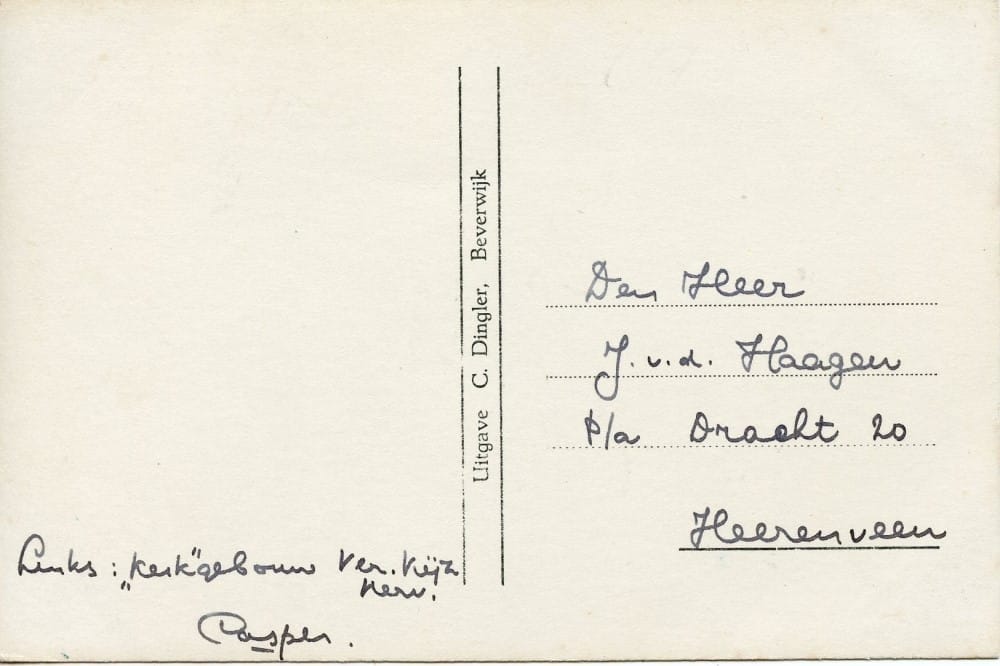 Links : „kerk"gebouw Ver. Vijz
Herv.
Casper.
Uitgave C. Dingler, Beverwijk
Den Heer
J. v. d. Haagen
P/a Dracht 20
Heerenveen